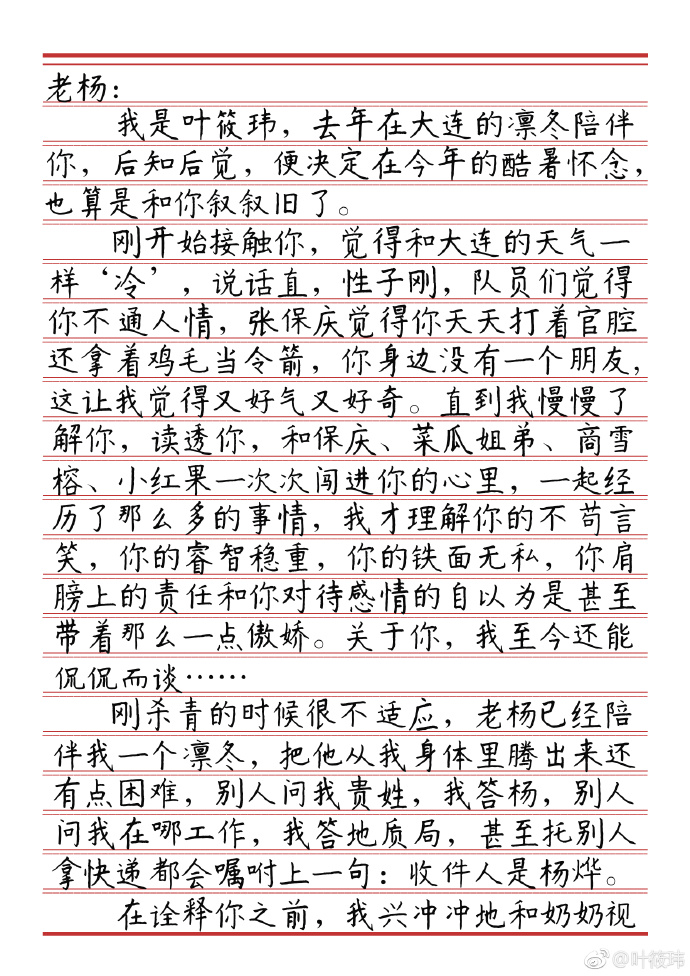 老杨：
我是叶筱玮，去年在大连的凛冬陪伴
你，后知后觉，便决定在今年的酷暑怀念，
也算是和你叙叙旧了。
刚开始接触你，觉得和大连的天气一
样‘冷’，说话直，性子刚，队员们觉得
你不通人情，张保庆觉得你天天打着官腔
还拿着鸡毛当令箭，你身边没有一个朋友，
这让我觉得又好气又好奇。直到我慢慢了
解你，读透你，和保庆、菜瓜姐弟、商雪
榕、小红果一次次闯进你的心里，一起经
历了那么多的事情，我才理解你的不苟言
笑，你的睿智稳重，你的铁面无私，你肩
膀上的责任和你对待感情的自以为是甚至
带着那么一点傲娇。关于你，我至今还能
侃侃而谈……
刚杀青的时候很不适应，老杨已经陪
伴我一个凛冬，把他从我身体里腾出来还
有点困难，别人问我贵姓，我答杨，别人
问我在哪工作，我答地质局，甚至托别人
拿快递都会嘱咐上一句：收件人是杨烨。
在诠释你之前，我兴冲冲地和奶奶视
@叶筱玮